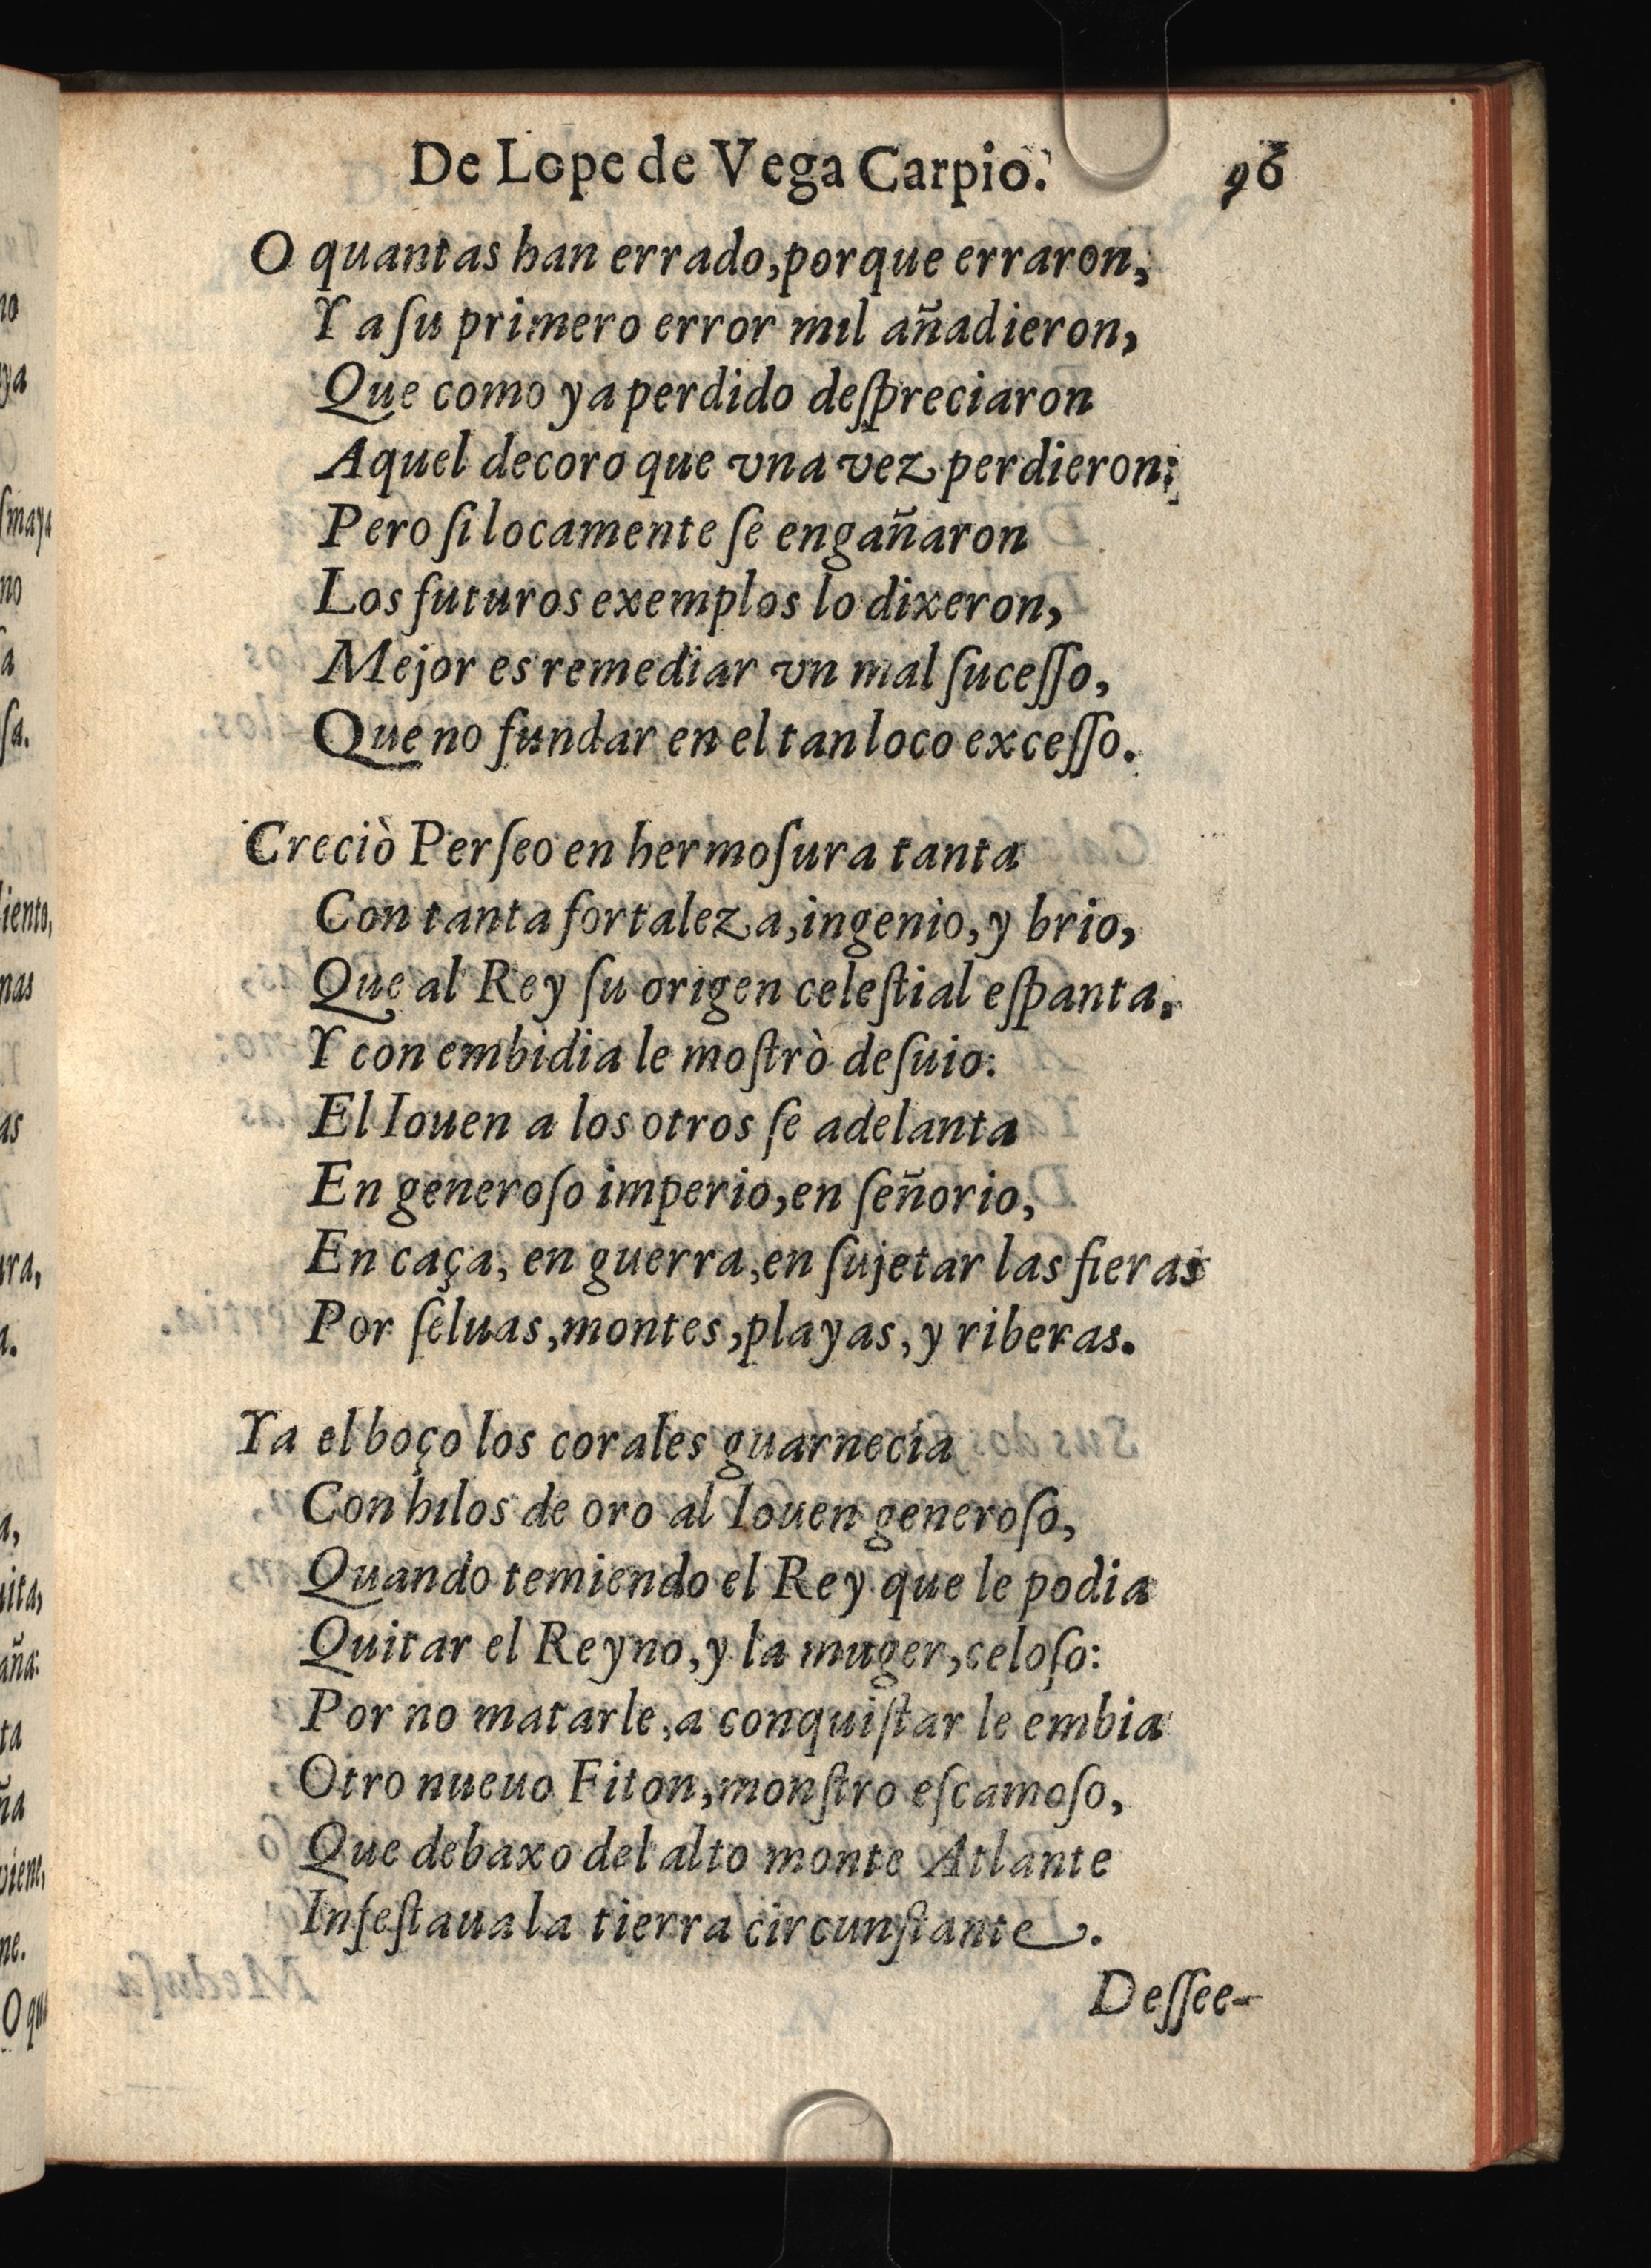 De Lope de Vega Carpio. 96
O quantas han errado, porque erraron,
Y a ſu primero error mil añadieron,
Que como ya perdido deſpreciaron
Aquel decoro que vna vez perdieron:
Pero ſi locamente ſe engañaron
Los futuros exemplos lo dixeron,
Mejor es remediar vn mal ſuceſſo,
Que no fundar en el tan loco exceſſo.
Creciò Perſeo en hermoſura tanta
Con tanta fortaleza, ingenio, y brio,
Que al Rey ſu origen celeſtial eſpanta,
Y con embidia le moſtrò deſuio:
El Iouen a los otros ſe adelanta
En generoſo imperio, en ſeñorio,
En caça, en guerra, en ſujetar las fieras
Por ſeluas, montes, playas, y riberas.
Ya el boço los corales guarnecia
Con hilos de oro al Iouen generoſo,
Quando temiendo el Rey que le podia
Quitar el Reyno, y la muger, celoſo:
Por no matarle, a conquiſtar le embia
Otro nueuo Fiton, monſtro eſcamoſo,
Que debaxo del alto monte Atlante
Infeſtaua la tierra circunſtante.
Deſſee-